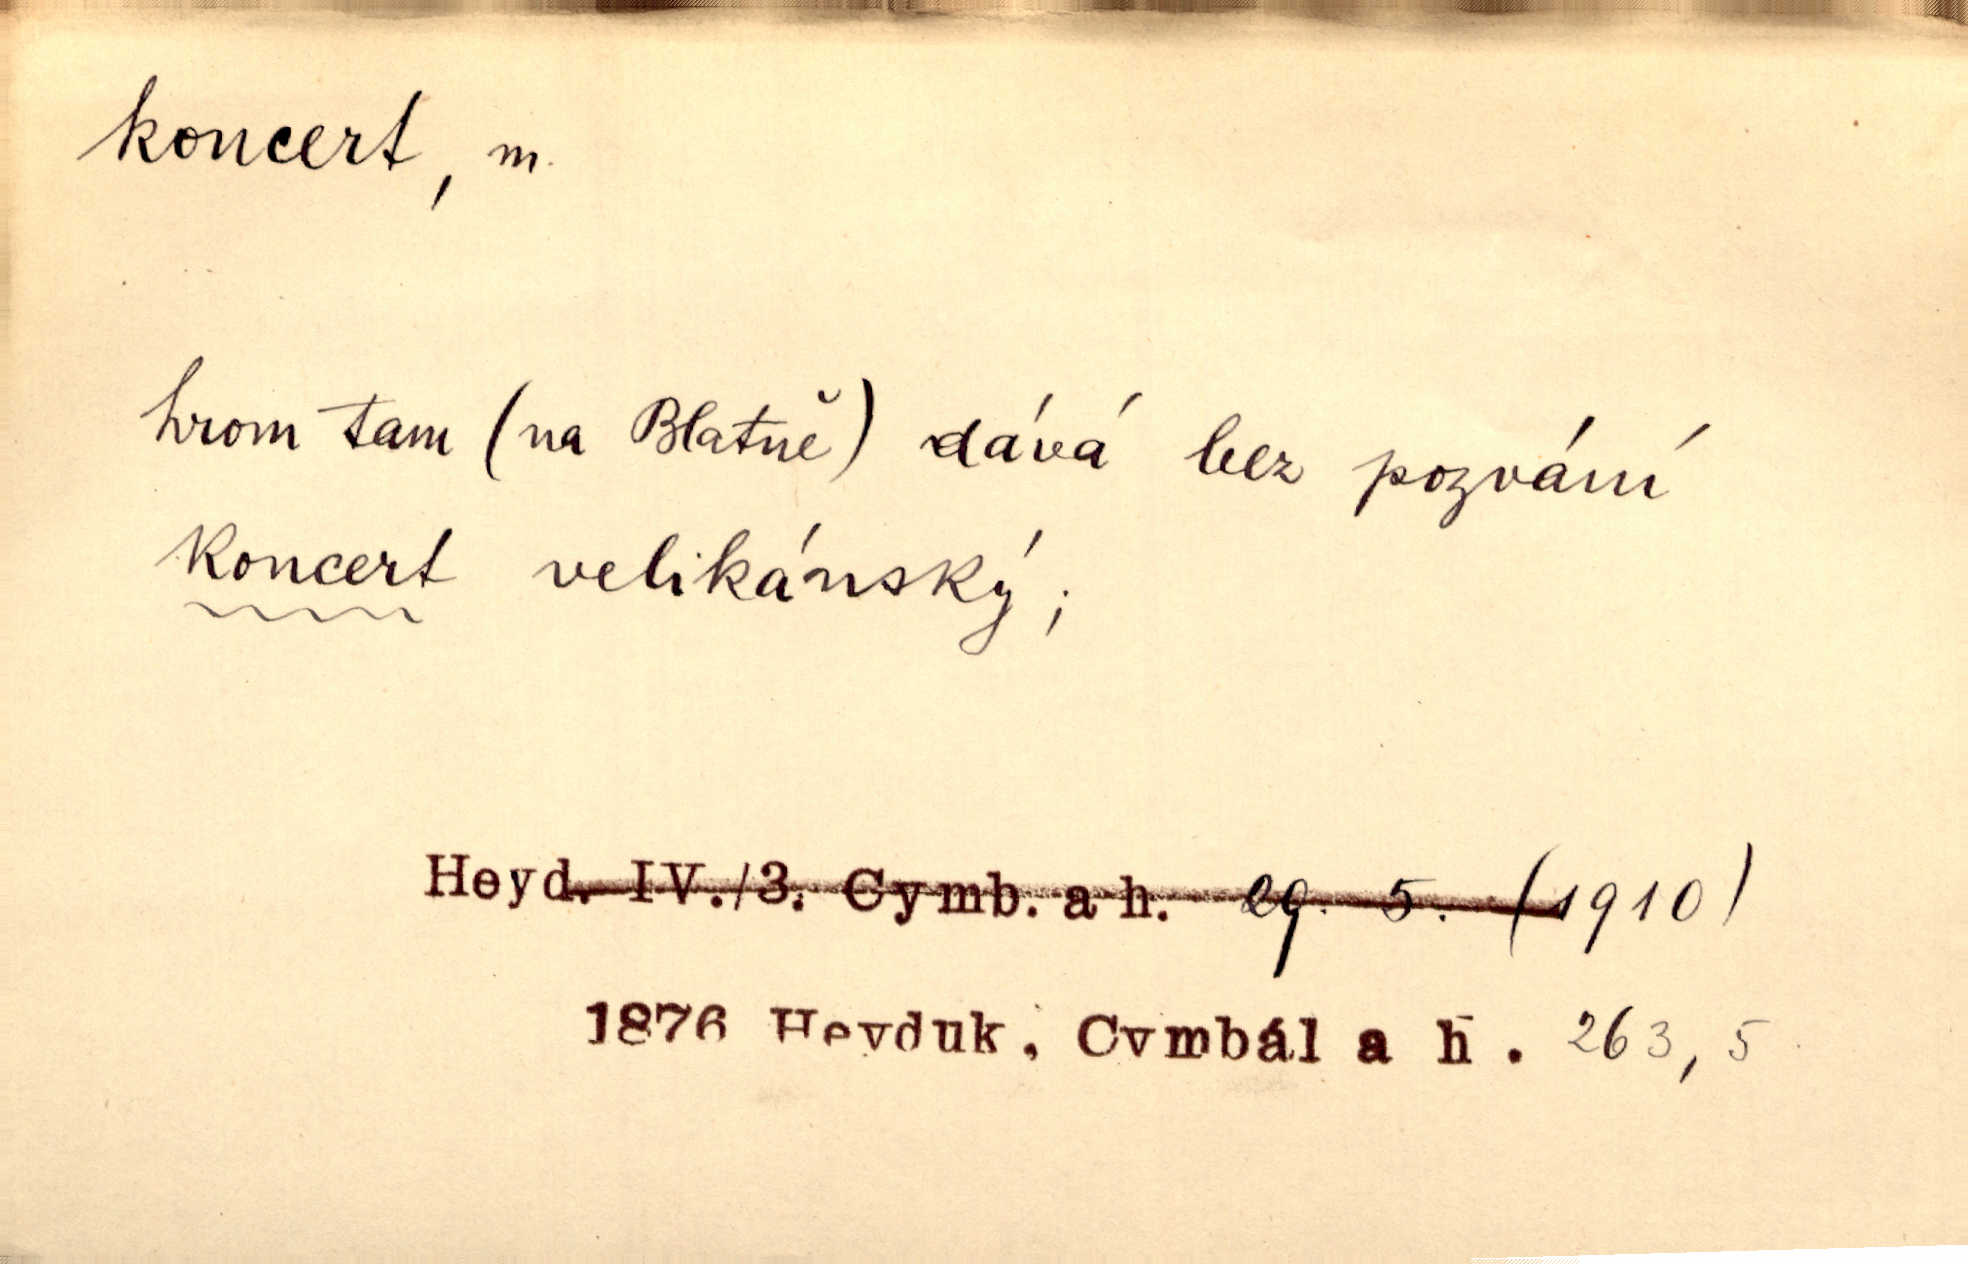 koncert, m.
hrom tam (na Blatně) dává bez pozvání
koncert velikánský;
Heyd. IV./3. Cymb. a h. 29. 5. (1910)
1876 Heyduk, Cymbál a h. 263, 5